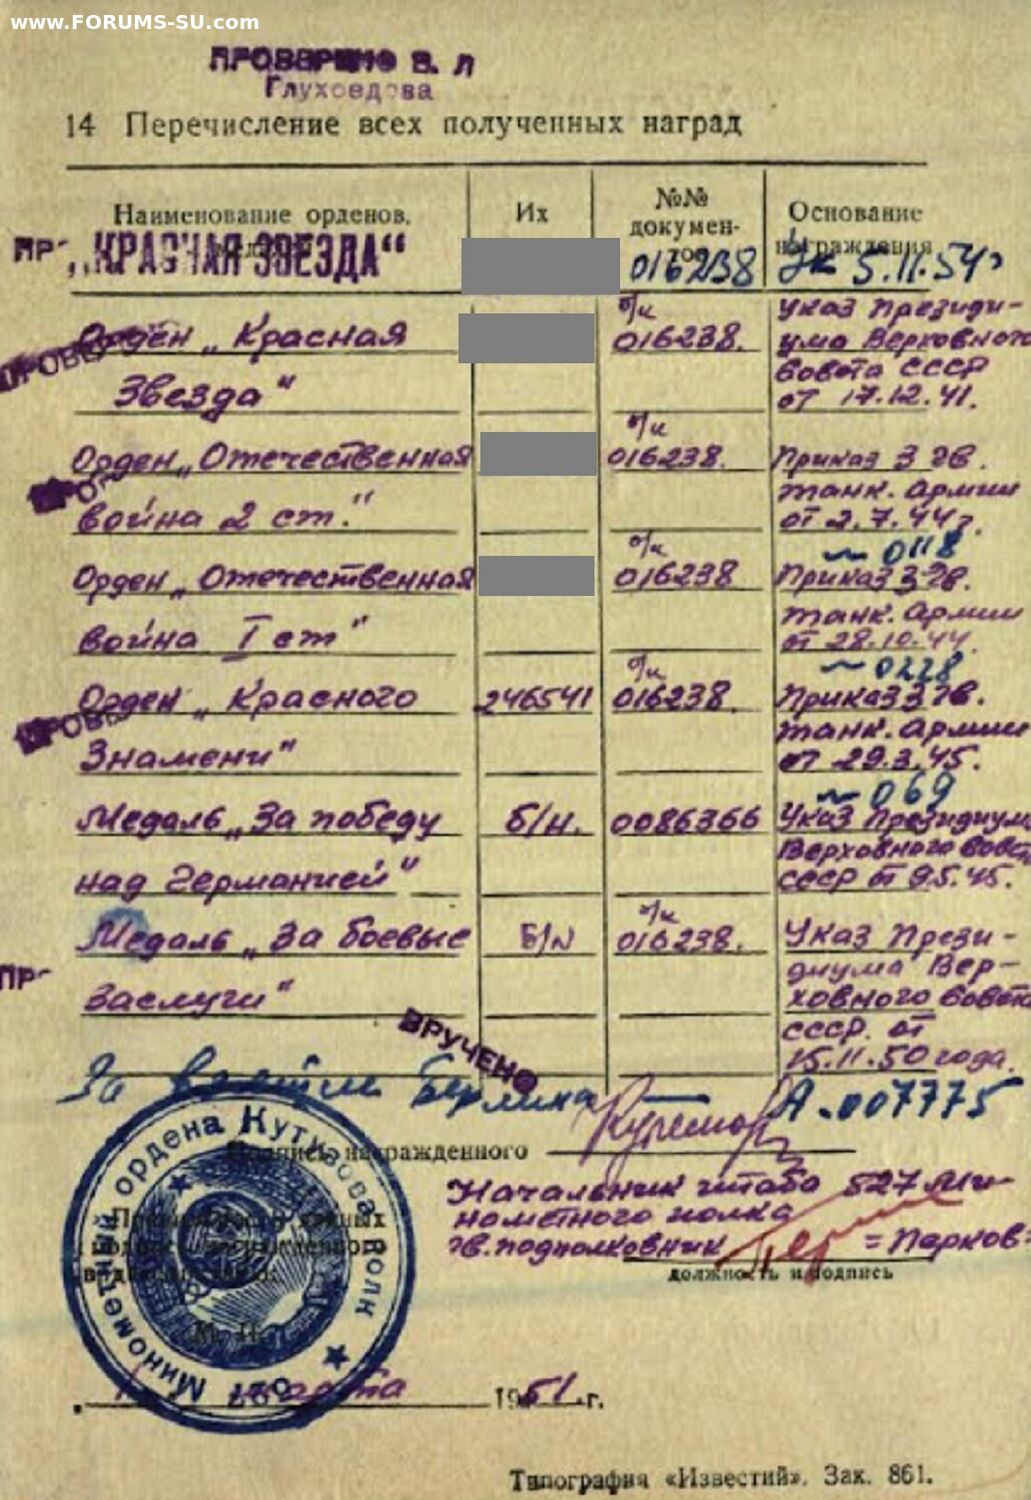 www.FORUMS-SU.com
ПРОВЕРЕНО В. Л
Глухоедова
14 Перечисление всех полученных наград
Наименование орденов, Их №№ докумен- Основание награждения
„КРАСНАЯ ЗВЕЗДА“ 016238 Ук 5.11.54г
Орден „Красная б/к 016238. Указ Президи-
ума Верховного
Звезда" Совета СССР
от 17.12.41.
Орден „Отечественная б/к 016238. Приказ 3 гв.
танк. армии
война 2 ст." от 2.7.44г.
~ 0118
Орден „Отечественная б/к 016238 Приказ 3 гв.
танк. Армии
война I ст" от 28.10.44.
~ 0228
Орден „Красного 246541 б/к 016238. Приказ 3 гв.
танк. Армии
Знамени" от 29.3.45.
~ 069
Медаль „За победу б/н. 0086366 Указ Президиума
Верховного Сове
над Германией" СССР от 9.5.45.
Медаль „За боевые Б/N б/к 016238. Указ Прези-
диума Вер-
заслуги" ховного Совета
СССР. от
15.11.50 года.
ВРУЧЕНО
За взятие Берлина — А.007775
Подпись награжденного
Начальник штаба 527 Ми-
нометного полка
гв. подполковник =Парков=
должность и подпись
527 Минометный ордена Кутузова полк
М. П.
марта 1951 г.
Типография «Известий». Зак. 861.